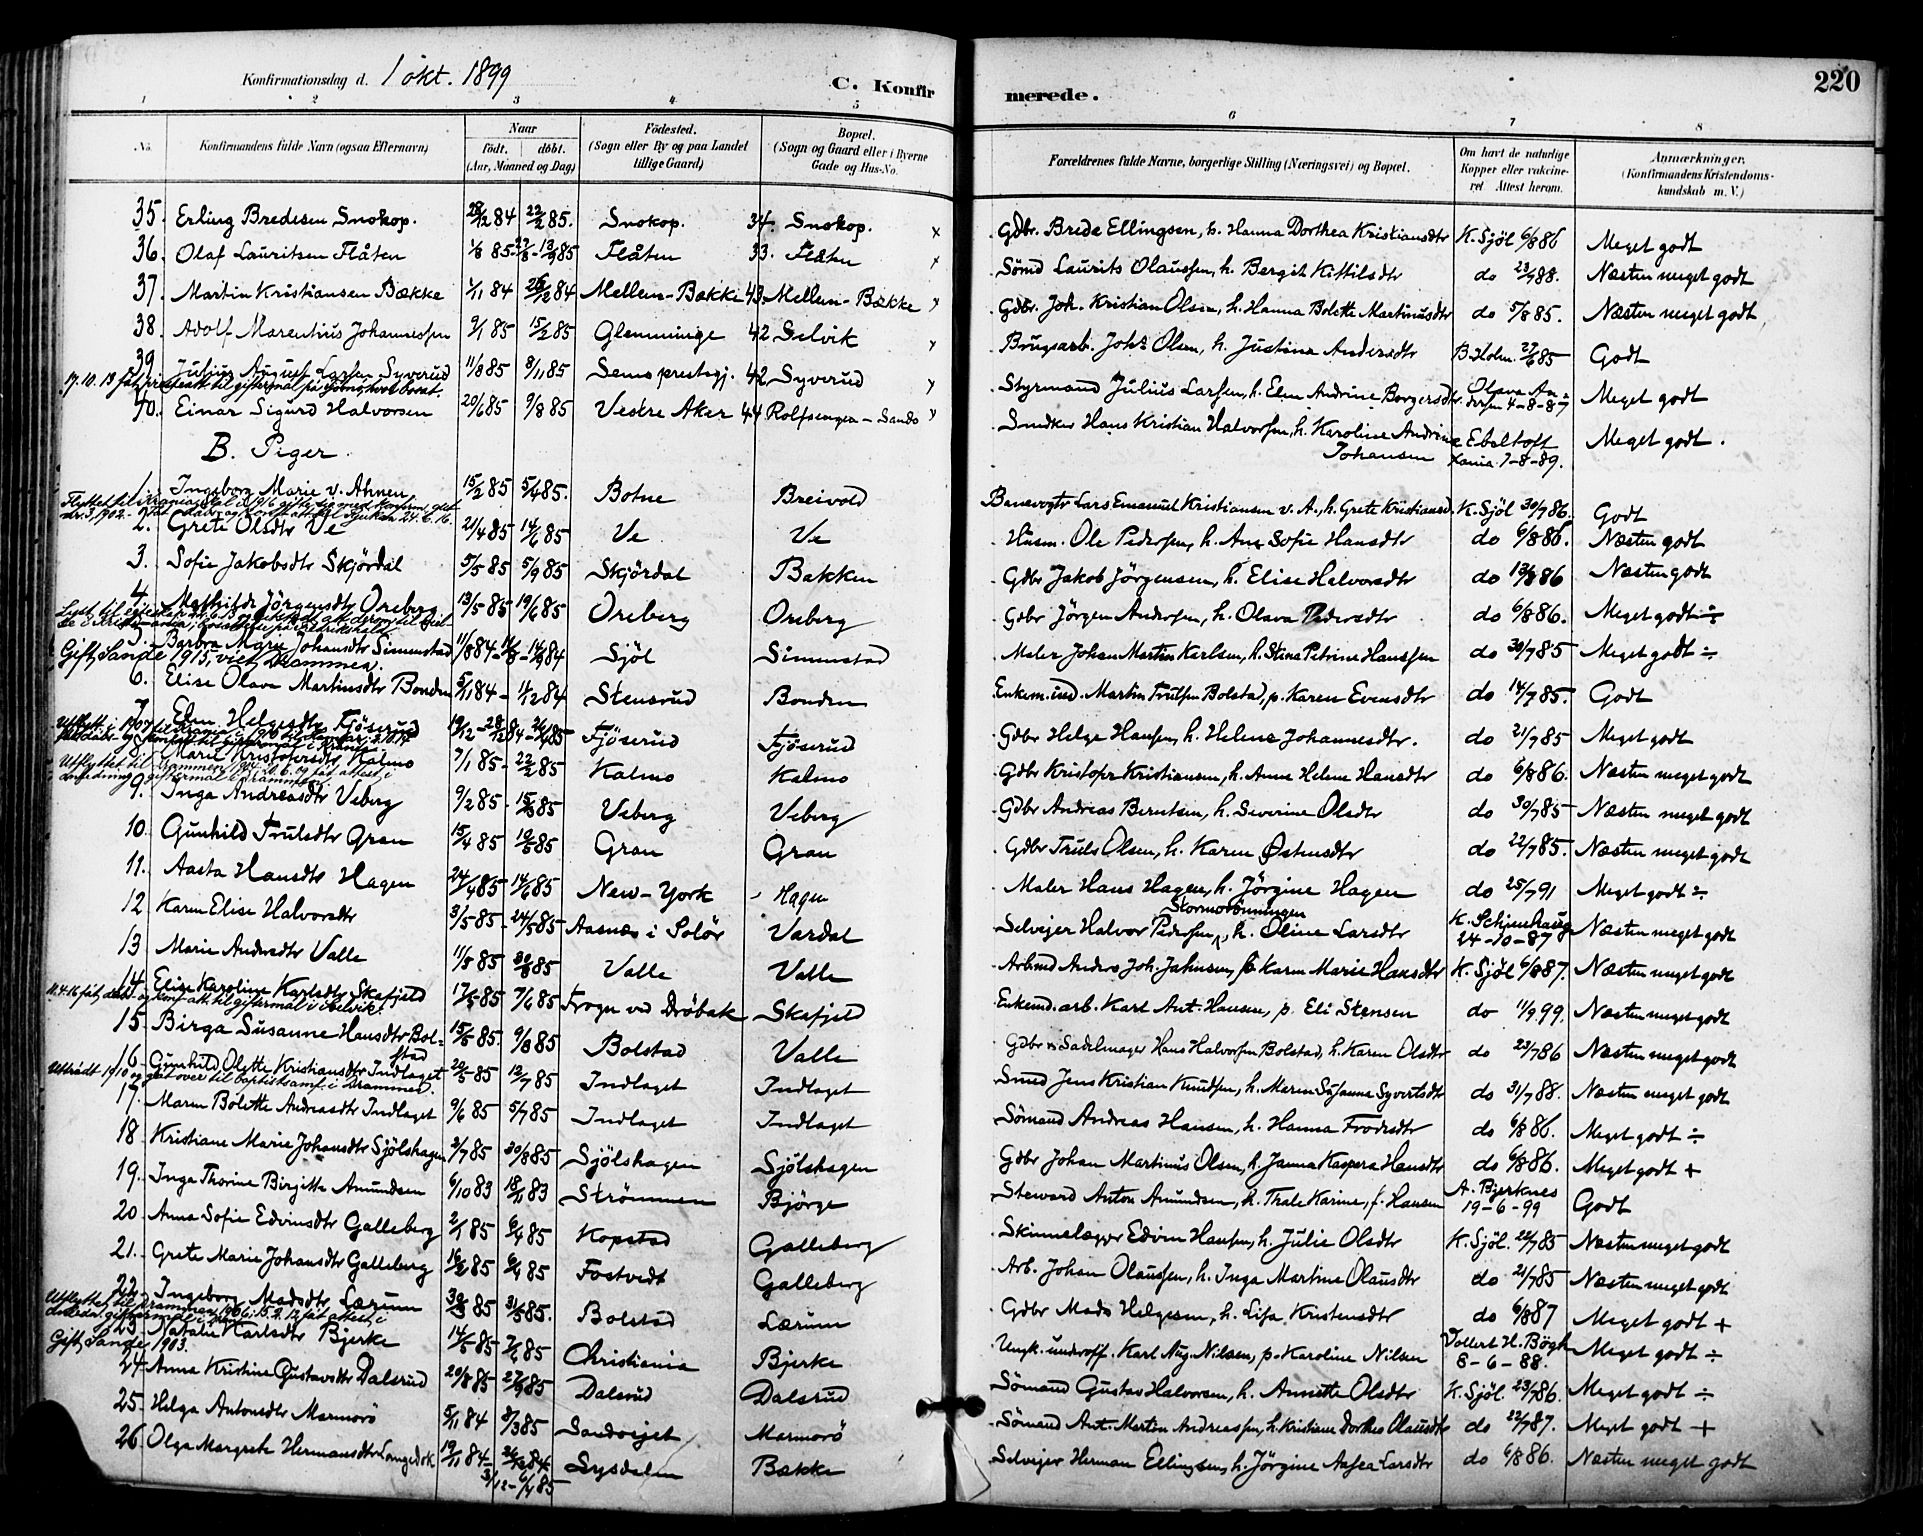 Konfirmationsdag d. 1 okt. 1899 C. Konfirmerede. 220
1 2 3 4 5 6 7 8
No. Konfirmandens fulde Navn (ogsaa Efternavn) Naar født. døbt. (Aar, Maaned og Dag) Fødested. (Sogn eller By og paa Landet tillige Gaard) Bopæl. (Sogn og Gaard eller i Byerne Gade og Hus-No. Forældrenes fulde Navne, borgerlige Stilling (Næringsvei) og Bopæl. Om havt de naturlige Kopper eller vakcineret Attest herom. Anmærkninger. (Konfirmandens Kristendomskundskab m. V.)
35. Erling Bredesen Snekop. 28/12 84 22/2 85. Snekop. 34. Snekop. x Gdbr. Brede Ellingsen, h. Hanna Dorthea Kristiansdtr K. Sjöl 6/8 86 Meget godt
36. Olaf Lauritsen Flåten 1/8 85 - 13/9 85 Flåten 33. Flåten Sömd Laurits Olaussen, h. Bergit Kittilsdtr do 23/7 88. Næsten meget godt
37. Martin Kristiansen Bække 1/11 84 26/12 84 Mellem-Bække 43. Mellem-Bække Gdbr. Joh. Kristian Olsen, h. Hanna Bolette Martinusdtr do 5/8 85. Næsten meget godt
38. Adolf Marentius Johannessen 9/1 85 15/2 85 Glemminge 42 Selvik Brugsarb. Johs Olsen, h. Justine Andersdtr B. Holm. 27/6 85 Godt
39 Julius August Larsen Syverud 11/8 85 8/11 85 Sems prestegj. 42. Syverud Styrmand Julius Larsen, h. Elen Andrine Borgersdtr. Olava Andersen 4-8-87 Meget godt
17.10.13 fåt
40. Einar Sigurd Halvorsen 20/6 85 9/8 85 Vestre Aker 44 Rolfsengen - Sande Snedker Hans Kristian Halvorsen, h. Karoline Andrine Johansen Ebeltoft Xania 7-8-89. Meget godt.
B. Piger.
1. Ingeborg Marie v. Ahnen 15/2 85 5/4 85. Botne Breivold Banevogter Lars Emanuel Kristiansen v. A., h. Grete Kristiansd. K. Sjöl 30/7 86. Godt
2. Grete Olsdtr Ve 21/4 85 14/6 85 Ve Ve Husm. Ole Pedersen, h. Ane Sofie Hansdtr do 6/8 86. Næsten godt
3. Sofie Jakobsdtr Skjördal 5/5 85 5/9 85 Skjördal Bakken Gdbr Jakob Jörgensen, h. Elise Halvorsdtr do 13/8 86 Næsten godt
4. Mathilde Jörgensdtr Oreberg 13/5 85 19/6 85 Oreberg Oreberg Gdbr Jörgen Andersen, h. Olava Pedersdtr do 6/8 86. Meget godt ÷
5. Barbra Marie Johansdtr Simenstad 11/8 84 - 14/9 84 Sjöl Simenstad Maler Johan Martin Karlsen, h. Stina Petrine Hanssen do 30/7 85 Meget godt ÷
Gift, Sande 1915, viet, Drammen.
6. Elise Olava Martinsdtr Bonden 5/11 84 - 1/12 84 Stensrud Bonden Enkem. ind. Martin Trulsen Bolstad, p. Karen Evensdtr do 14/7 85. Godt
7. Elen Helgesdtr Fjöserud Fjöserud Fjöserud Gdbr Helge Hansen, h. Helene Johannesdtr. do 21/7 85 Meget godt
8. Marie Kristofersdtr Kalmo 7/1 85 - 22/2 85 Kalmo Kalmo Gdbr Kristofer Kristiansen, h. Anne Helene Hansdtr do 6/8 86. Næsten meget godt
9. Inga Andreasdtr Veberg 9/2 85 - 15/3 85 Veberg Veberg Gdbr Andreas Berntsen, h. Severine Olsdtr do 30/7 85 Næsten meget godt
10. Gunhild Trulsdtr Gran 15/4 85 19/5 85 Gran Gran Gdbr Truls Olsen, h. Karen Østensdtr do 22/7 85. Næsten meget godt
11. Aasta Hansdtr Hagen 24/4 85 14/6 85 New-York Hagen Maler Hans Hagen, h. Jörgine Hagen do 25/7 91 Meget godt ÷
12 Karen Elise Halvorsdtr 3/5 85 - 24/5 85 Aasnæs i Solör Vardal Selveier Halvor Pedersen, h. Oline Larsdtr 24-10-87 Næsten meget godt
13 Marie Andersdtr Valle 11/5 85 30/8 85 Valle Valle Arbmd Anders Joh. Jahnsen, h. Karen Marie Hansdtr K. Sjöl 6/8 87. Næsten meget godt
14. Elise Karoline Karlsdtr Skafjeld 17/5 85 7/6 85 Frogn ved Dröbak Skafjeld Enkemd. arb. Karl Ant. Hansen, p. Eli Stensen do 11/9 99. Næsten meget godt
15. Birga Susanne Hansdtr Bolstad 15/5 85. 9/8 85 Bolstad Valle Gdbr & Sadelmager Hans Halvorsen Bolstad, h. Karen Olsdtr do 23/7 86 Næsten meget godt
16. Gunhild Olette Kristiansdtr Indlaget 22/5 85 12/7 85 Indlaget Indlaget Smed Jens Kristian Knudsen, h. Maren Susanne Syvertsdtr do 31/7 88. Næsten meget godt
Udtrådt 1910 og gåt over til baptistsamf. i Drammen.
17. Maren Bolette Andreasdtr Indlaget 9/6 85 5/7 85 Indlaget Indlaget Sömand Andreas Hansen, h. Hanna Frodesdtr do 6/8 86. Meget godt ÷
18. Kristiane Marie Johansdtr Sjölshagen 3/7 85 30/8 85 Sjölshagen Sjölshagen Gdbr Johan Martinus Olsen, h. Janna Kaspera Hansdtr do 6/8 86. Meget godt +
19. Inga Thorine Birgitte Amundsen 6/10 83 18/11 83 Strömmen Björge Steward Anton Amundsen, h. Thale Karine, f. Hansen A. Bjerknes 19-6-99 Godt
20 Anna Sofie Edvinsdtr Galleberg 2/1 85 6/4 85 Kopstad Galleberg Skinnelægger Edvin Hansen, h. Julie Olsdtr K. Sjöl. 22/7 85 Næsten meget godt
21. Grete Marie Johansdtr Galleberg 16/2 85 6/4 85 Fostvedt Galleberg Arb. Johan Olaussen, h. Inga Martine Olausdtr do 21/7 85 Næsten meget godt
22. Ingeborg Madsdtr Lærum 30/3 85 31/5 85. Bolstad Lærum Gdbr Mads Helgesen, h. Lisa Kristensdtr do 6/8 87 Meget godt +
23. Natalie Karlsdtr Bjerke 14/5 85 7/6 85 Christiania Bjerke Ungk. underoff. Karl Aug. Nilsen, p. Karoline Nilsen Vollert H. Bögh 8-6-88. Meget godt ÷
Gift, Sande 1903.
24. Anna Kristine Gustavsdtr Dalsrud 20/8 85 27/9 85 Dalsrud Dalsrud Sömand Gustav Halvorsen, h. Annette Olsdtr K. Sjöl. 23/7 86. Meget godt ÷
25. Helga Antonsdtr Marmorö 5/11 84 8/3 85 Sandviget Marmorö Sömand Ant. Martin Andreassen, h. Kristiane Dorthea Olausdtr do 22/7 87. Meget godt +
26 Olga Margrete Hermansdtr Langedok 19/11 84 - 26/12 84 3/12 - 6/4 85 Lysdalen Bække Selveier Herman Ellingsen, h. Jörgine Aasea Larsdtr do 6/8 86. Næsten meget godt